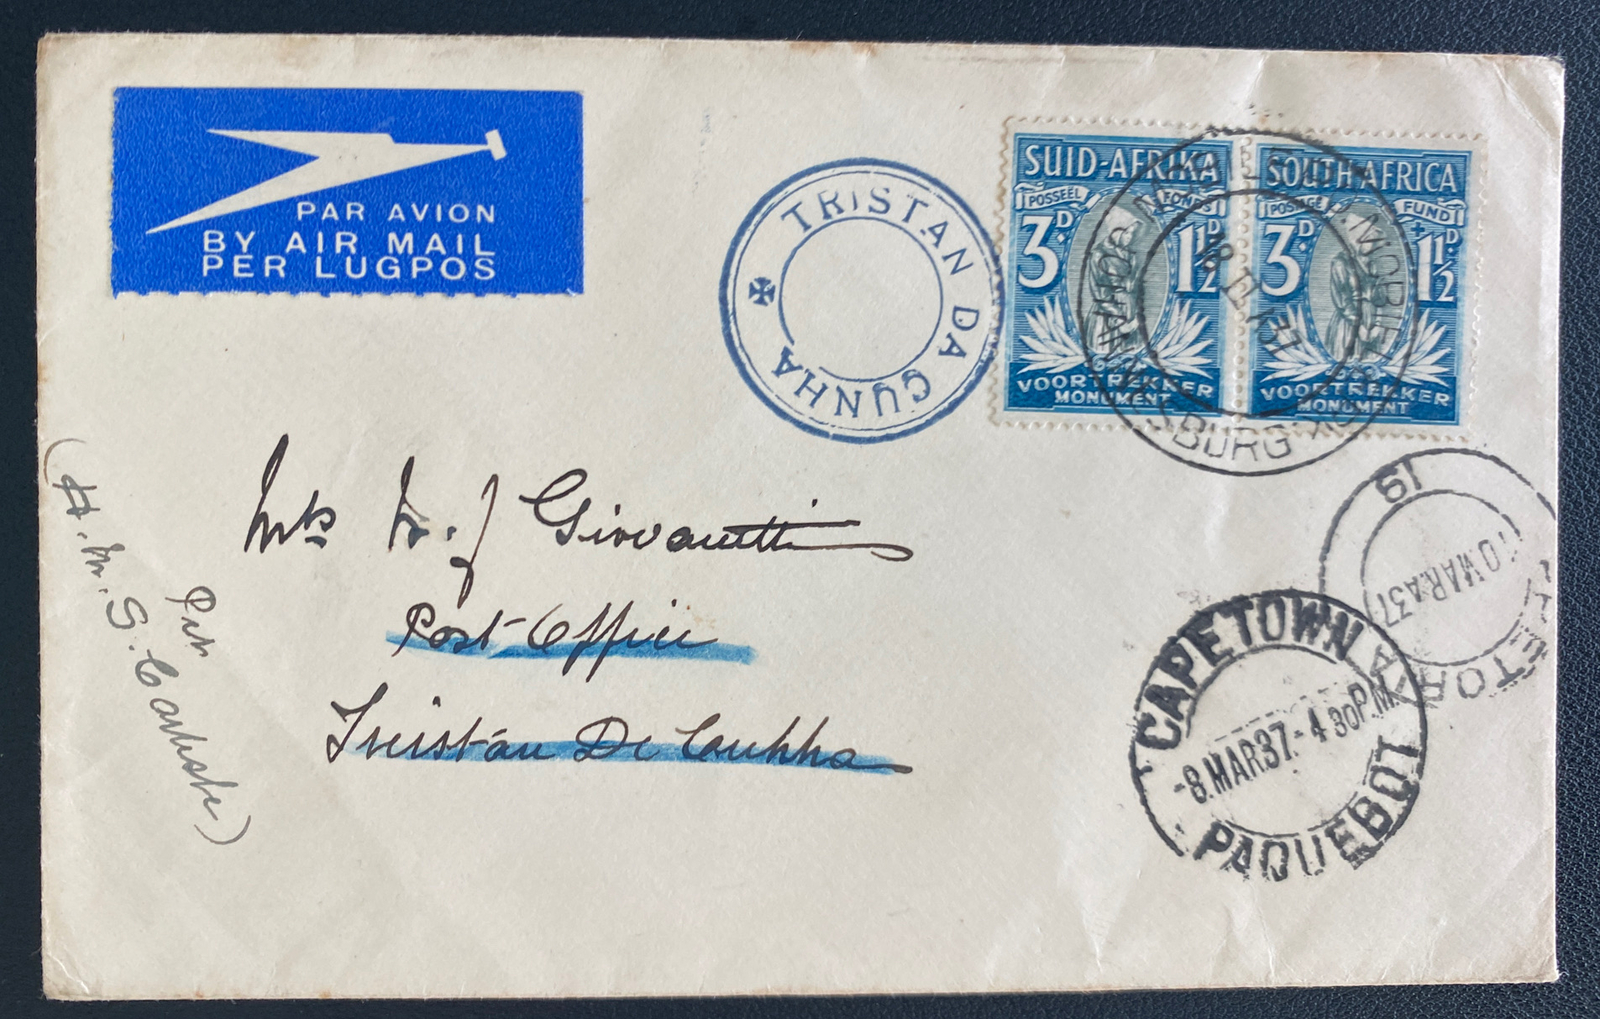 PAR AVION
BY AIR MAIL
PER LUGPOS
TRISTAN DA CUNHA
SUID-AFRIKA
POSSEEL FONDS
3D 1½D
VOORTREKKER
MONUMENT
SOUTH AFRICA
POSTAGE FUND
3D + 1½D
VOORTREKKER
MONUMENT
JOHANNESBURG
37
Mrs W. J Giovanetti
Post Office
Tristan De Cunhha
(Per
H.M.S. Carlisle)
19
10 MAR 37
CAPETOWN
-8.MAR37.-4 30P.M.
PAQUEBOT